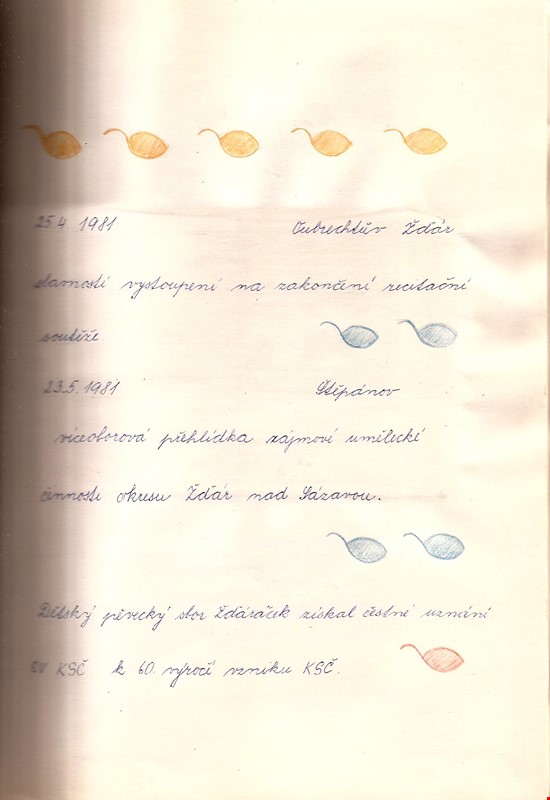 25.4 1981 Cubrechtův Žďár
slavnosti vystoupení na zakončení recitační
soutěže
23.5.1981 Štěpánov
víceoborová přehlídka zájmové umělecké
činnosti okresu Žďár nad Sázavou.
Dětský pěvecký sbor Žďáráček získal čestné uznání
OV KSČ k 60. výročí vzniku KSČ.